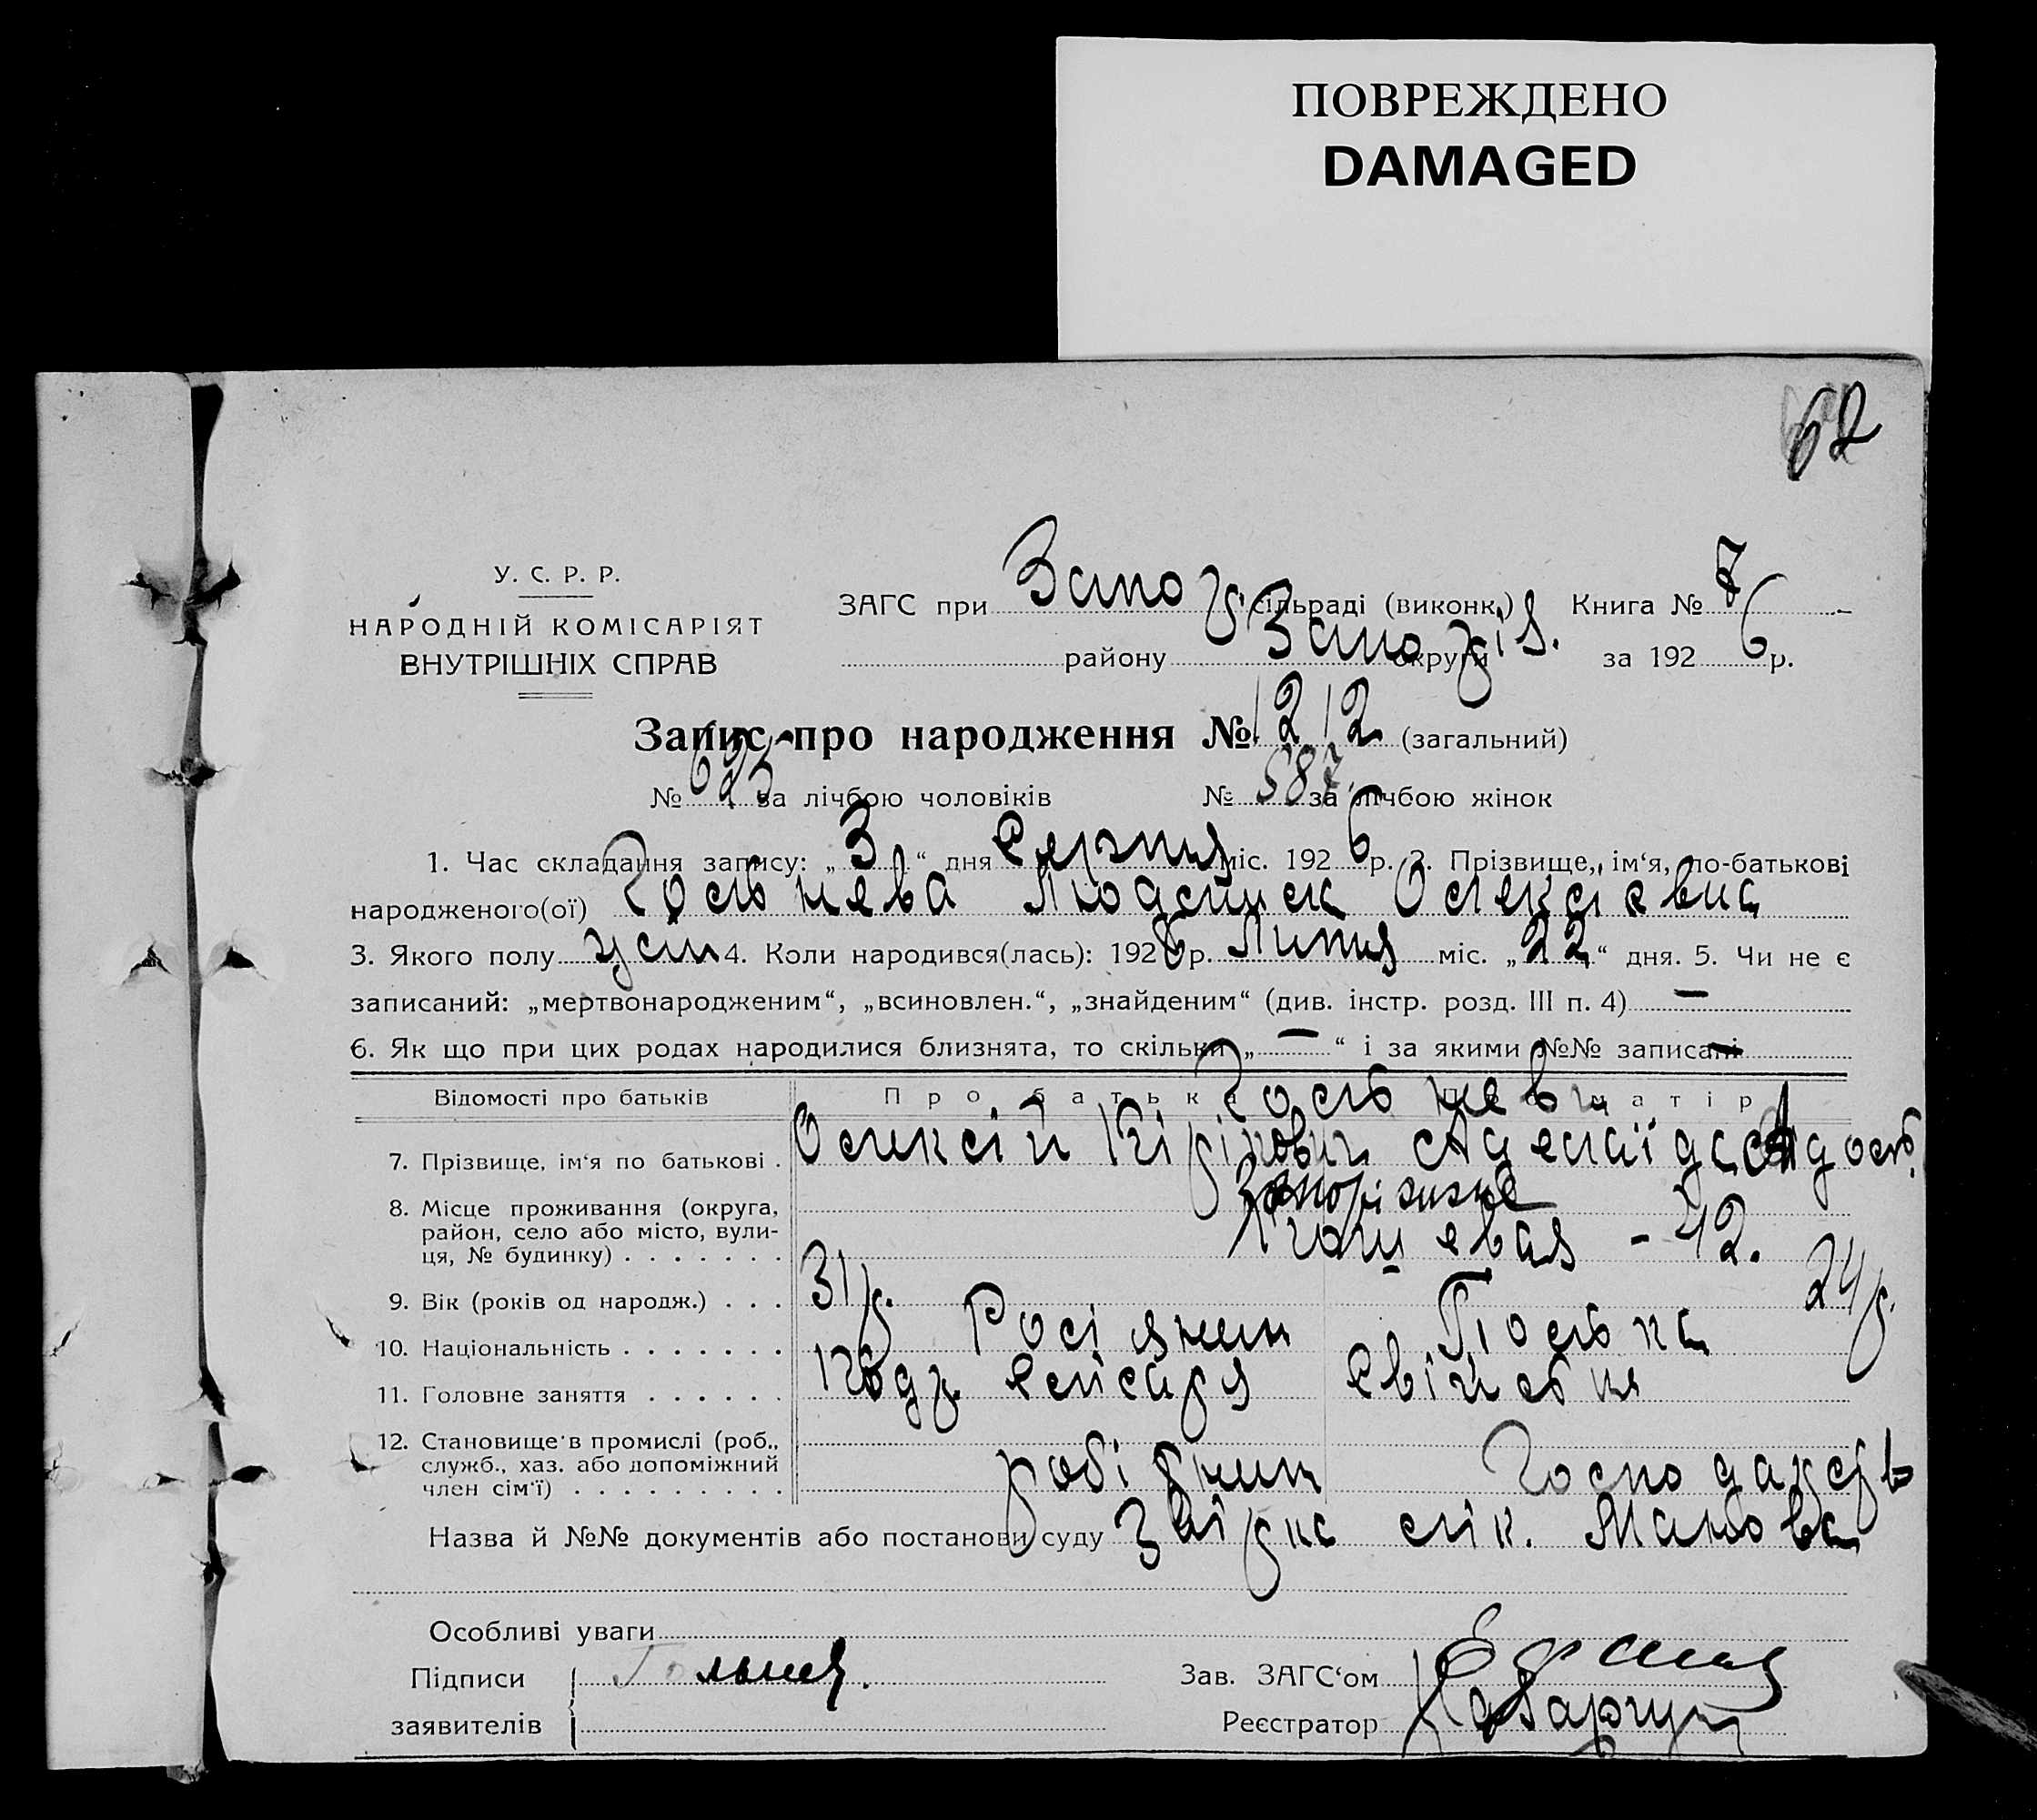 ПОВРЕЖДЕНО
DAMAGED
62
У. С. Р. Р.
НАРОДНІЙ КОМІСАРІЯТ
ВНУТРІШНІХ СПРАВ
ЗАГС при Запо сільраді (виконк.) Книга № 7
району Запоріз. округи за 1926 р.
Запис про народження № 1212 (загальний)
№ за лічбою чоловіків № 587 за лічбою жінок
1. Час складання запису: „3“ дня Серпня міс. 1926 р. 2. Прізвище, ім‘я, по-батькові
народженого(ої) Гольнева Людмила Олексіевна
3. Якого полу 4. Коли народився(лась): 1926 р. Липня міс. „22“ дня. 5. Чи не є
записаний: „мертвонародженим“, „всиновлен.“, „знайденим“ (див. інстр. розд. III п. 4) —
6. Як що при цих родах народилися близнята, то скільки „—“ і за якими №№ записані —
Відомості про батьків Про батька Про матір
Гольневи
7. Прізвище, ім‘я по батькові . Олексій Кірілович Аделаїда
8. Місце проживання (округа,
район, село або місто, вули-
ця, № будинку) . . . . . . . - 42.
Запоріжжя
9. Вік (років од народж.) . . . 31 р. 24 р.
10. Національність . . . . . . . Росіянин Полька
11. Головне заняття . . . . . . слісаря
12. Становище в промислі (роб.,
служб., хаз. або допоміжний
член сім‘ї) . . . . . . . . . робітник господарств
Назва й №№ документів або постанови суду лік.
Особливі уваги
Підписи
заявителів
Зав. ЗАГС‘ом
Реєстратор